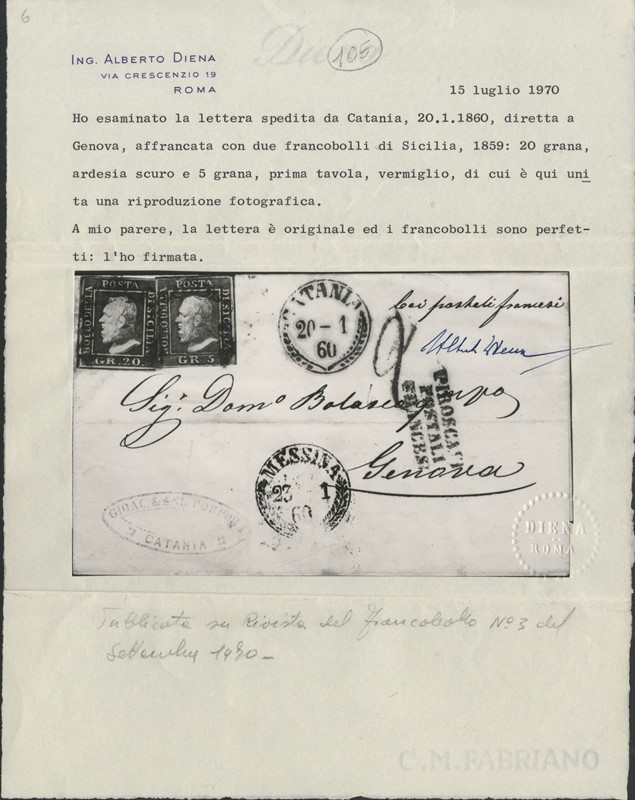 6
105
ING. ALBERTO DIENA
VIA CRESCENZIO 19
ROMA
15 luglio 1970
Ho esaminato la lettera spedita da Catania, 20.1.1860, diretta a
Genova, affrancata con due francobolli di Sicilia, 1859: 20 grana,
ardesia scuro e 5 grana, prima tavola, vermiglio, di cui è qui uni
ta una riproduzione fotografica.
A mio parere, la lettera è originale ed i francobolli sono perfet-
ti: l'ho firmata.
POSTA
BOLLO DELLA
DI SICILIA
GR. 20
POSTA
BOLLO DELLA
DI SICILIA
GR. 5
CATANIA
20-1
60
Coi postali francesi
Sig.r Dom.o
PIROSCAFI
POSTALI
FRANCESI
Genova
MESSINA
23 1
60
GIOAC. &
CATANIA
DIENA
ROMA
Pubblicata su Rivista del francobollo No 3 del
Settembre
C.M.FABRIANO